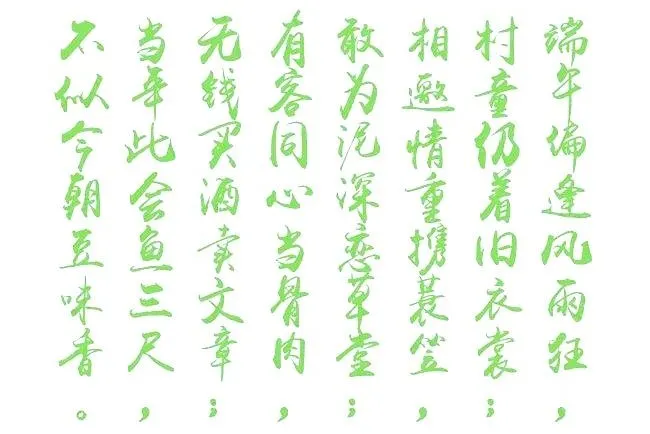 端午偏逢风雨狂，
村童仍着旧衣裳；
相邀情重携蓑笠，
敢为泥深恋草堂；
有客同心当骨肉，
无钱买酒卖文章；
当年此会鱼三尺，
不似今朝豆味香。